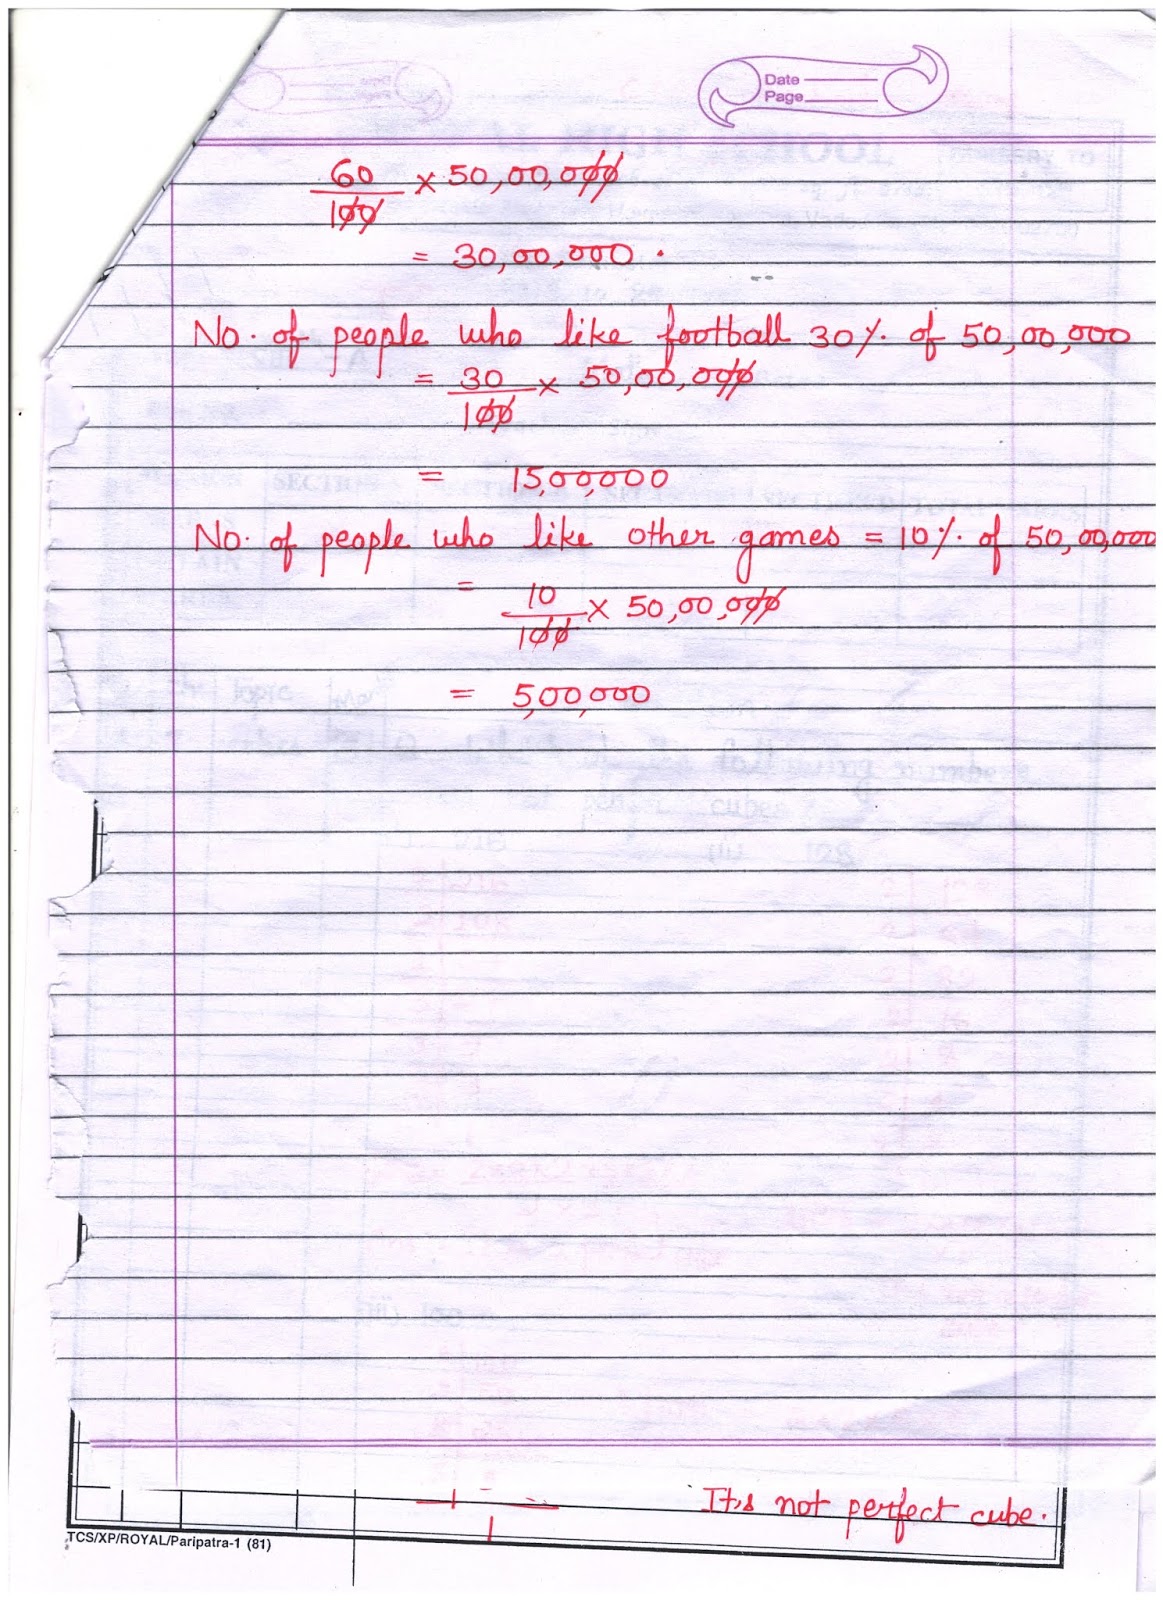 Date
Page
60/100 × 50,00,000
= 30,00,000.
No. of people who like football 30%. of 50,00,000
= 30/100 × 50,00,000
= 15,00,000
No. of people who like other games = 10%. of 50,00,000
= 10/100 × 50,00,000
= 5,00,000
It's not perfect cube.
TCS/XP/ROYAL/Paripatra-1 (81)